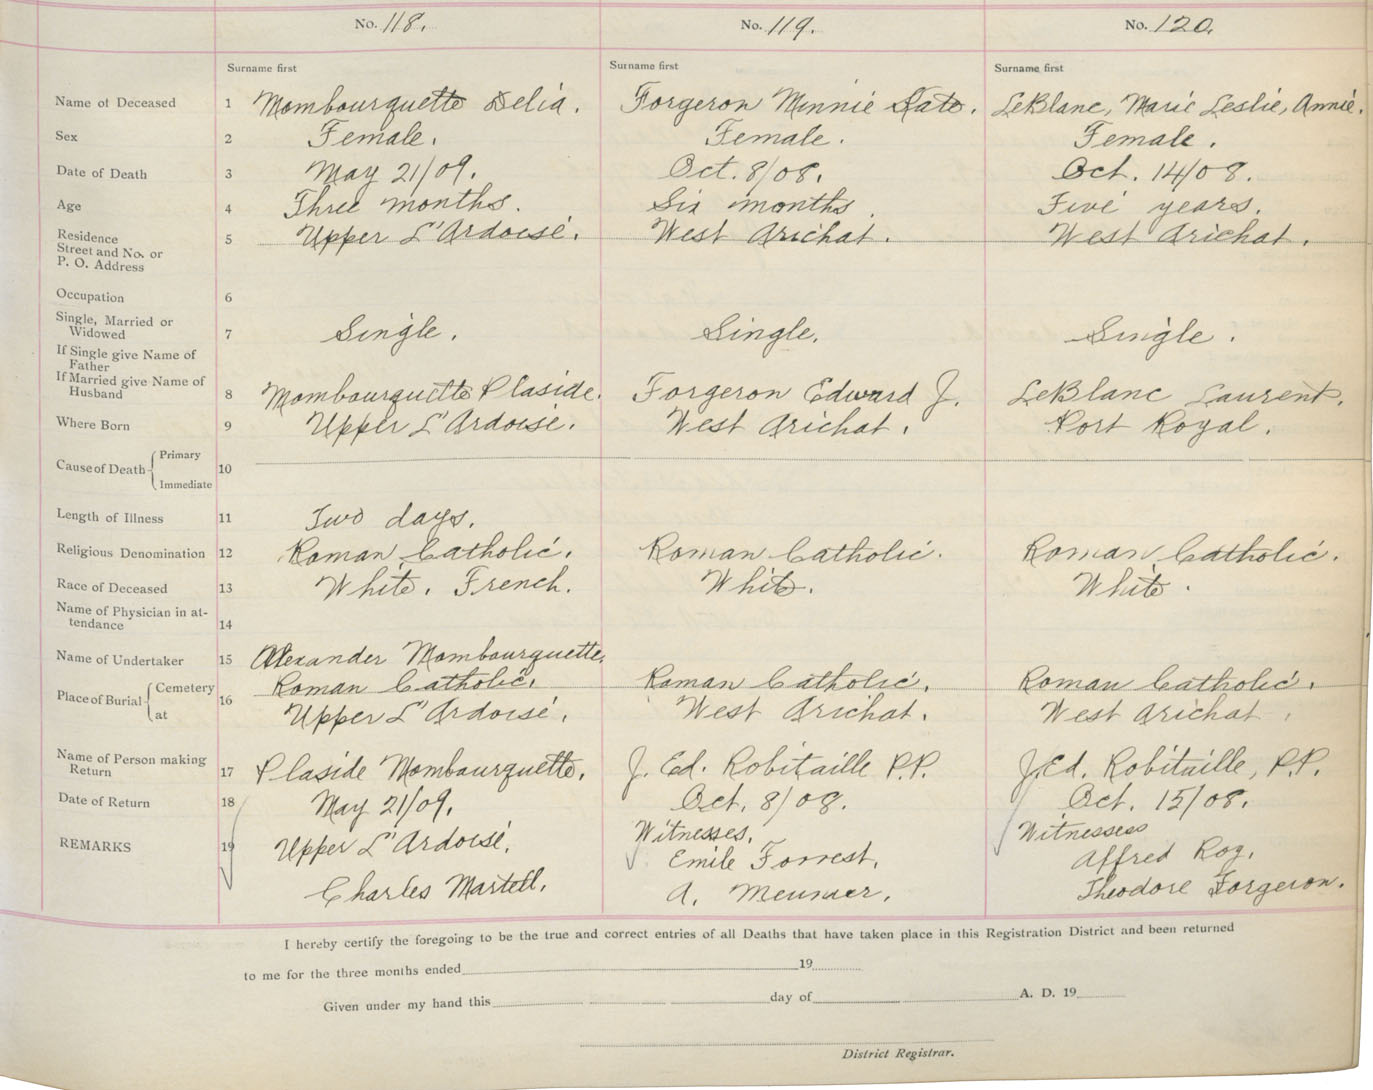 No. 118. No. 119. No. 120.
Surname first Surname first Surname first
Name of Deceased 1 Mombourquette Delia. Forgeron Minnie Kate. LeBlanc, Marie Leslie, Annie.
Sex 2 Female. Female. Female.
Date of Death 3 May 21/09. Oct. 8/08. Oct. 14/08.
Age 4 Three months. Six months. Five years.
Residence
Street and No. or
P. O. Address 5 Upper L'Ardoise. West Arichat. West Arichat.
Occupation 6
Single, Married or
Widowed 7 Single. Single. Single.
If Single give Name of
Father
If Married give Name of
Husband 8 Mombourquette Placide. Forgeron Edward J. LeBlanc Laurent.
Where Born 9 Upper L'Ardoise. West Arichat. Port Royal.
Cause of Death Primary
Immediate 10
Length of Illness 11 Two days.
Religious Denomination 12 Roman Catholic. Roman Catholic. Roman Catholic.
Race of Deceased 13 White. French. White. White.
Name of Physician in at-
tendance 14
Name of Undertaker 15 Alexander Mombourquette.
Place of Burial Cemetery 16 Roman Catholic. Roman Catholic. Roman Catholic.
at Upper L'Ardoise. West Arichat. West Arichat.
Name of Person making
Return 17 Plaside Mombourquette. J. Ed. Robitaille P.P. J. Ed. Robitaille, P.P.
Date of Return 18 May 21/09. Oct. 8/08. Oct. 15/08.
REMARKS 19 Upper L'Ardoise. Witnesses. Witnesses
Charles Martell. Emile Forrest. Alfred Roy.
A. Meunier. Theodore Forgeron.
I hereby certify the foregoing to be the true and correct entries of all Deaths that have taken place in this Registration District and been returned
to me for the three months ended 19
Given under my hand this day of A. D. 19
District Registrar.